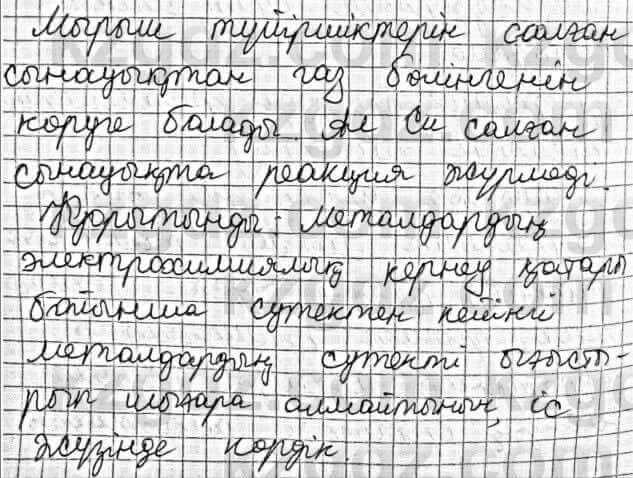 Мырыш түйіршіктерін салған
сынауықтан газ бөлінгенін
көруге болады. Ал Cu салған
сынауықта реакция жүрмеді.
Қорытынды: металдардың
электрохимиялық кернеу қатары
бойынша сутектен кейінгі
металдардың сутекті ығысты-
рып шығара алмайтынын, іс
жүзінде көрдік.